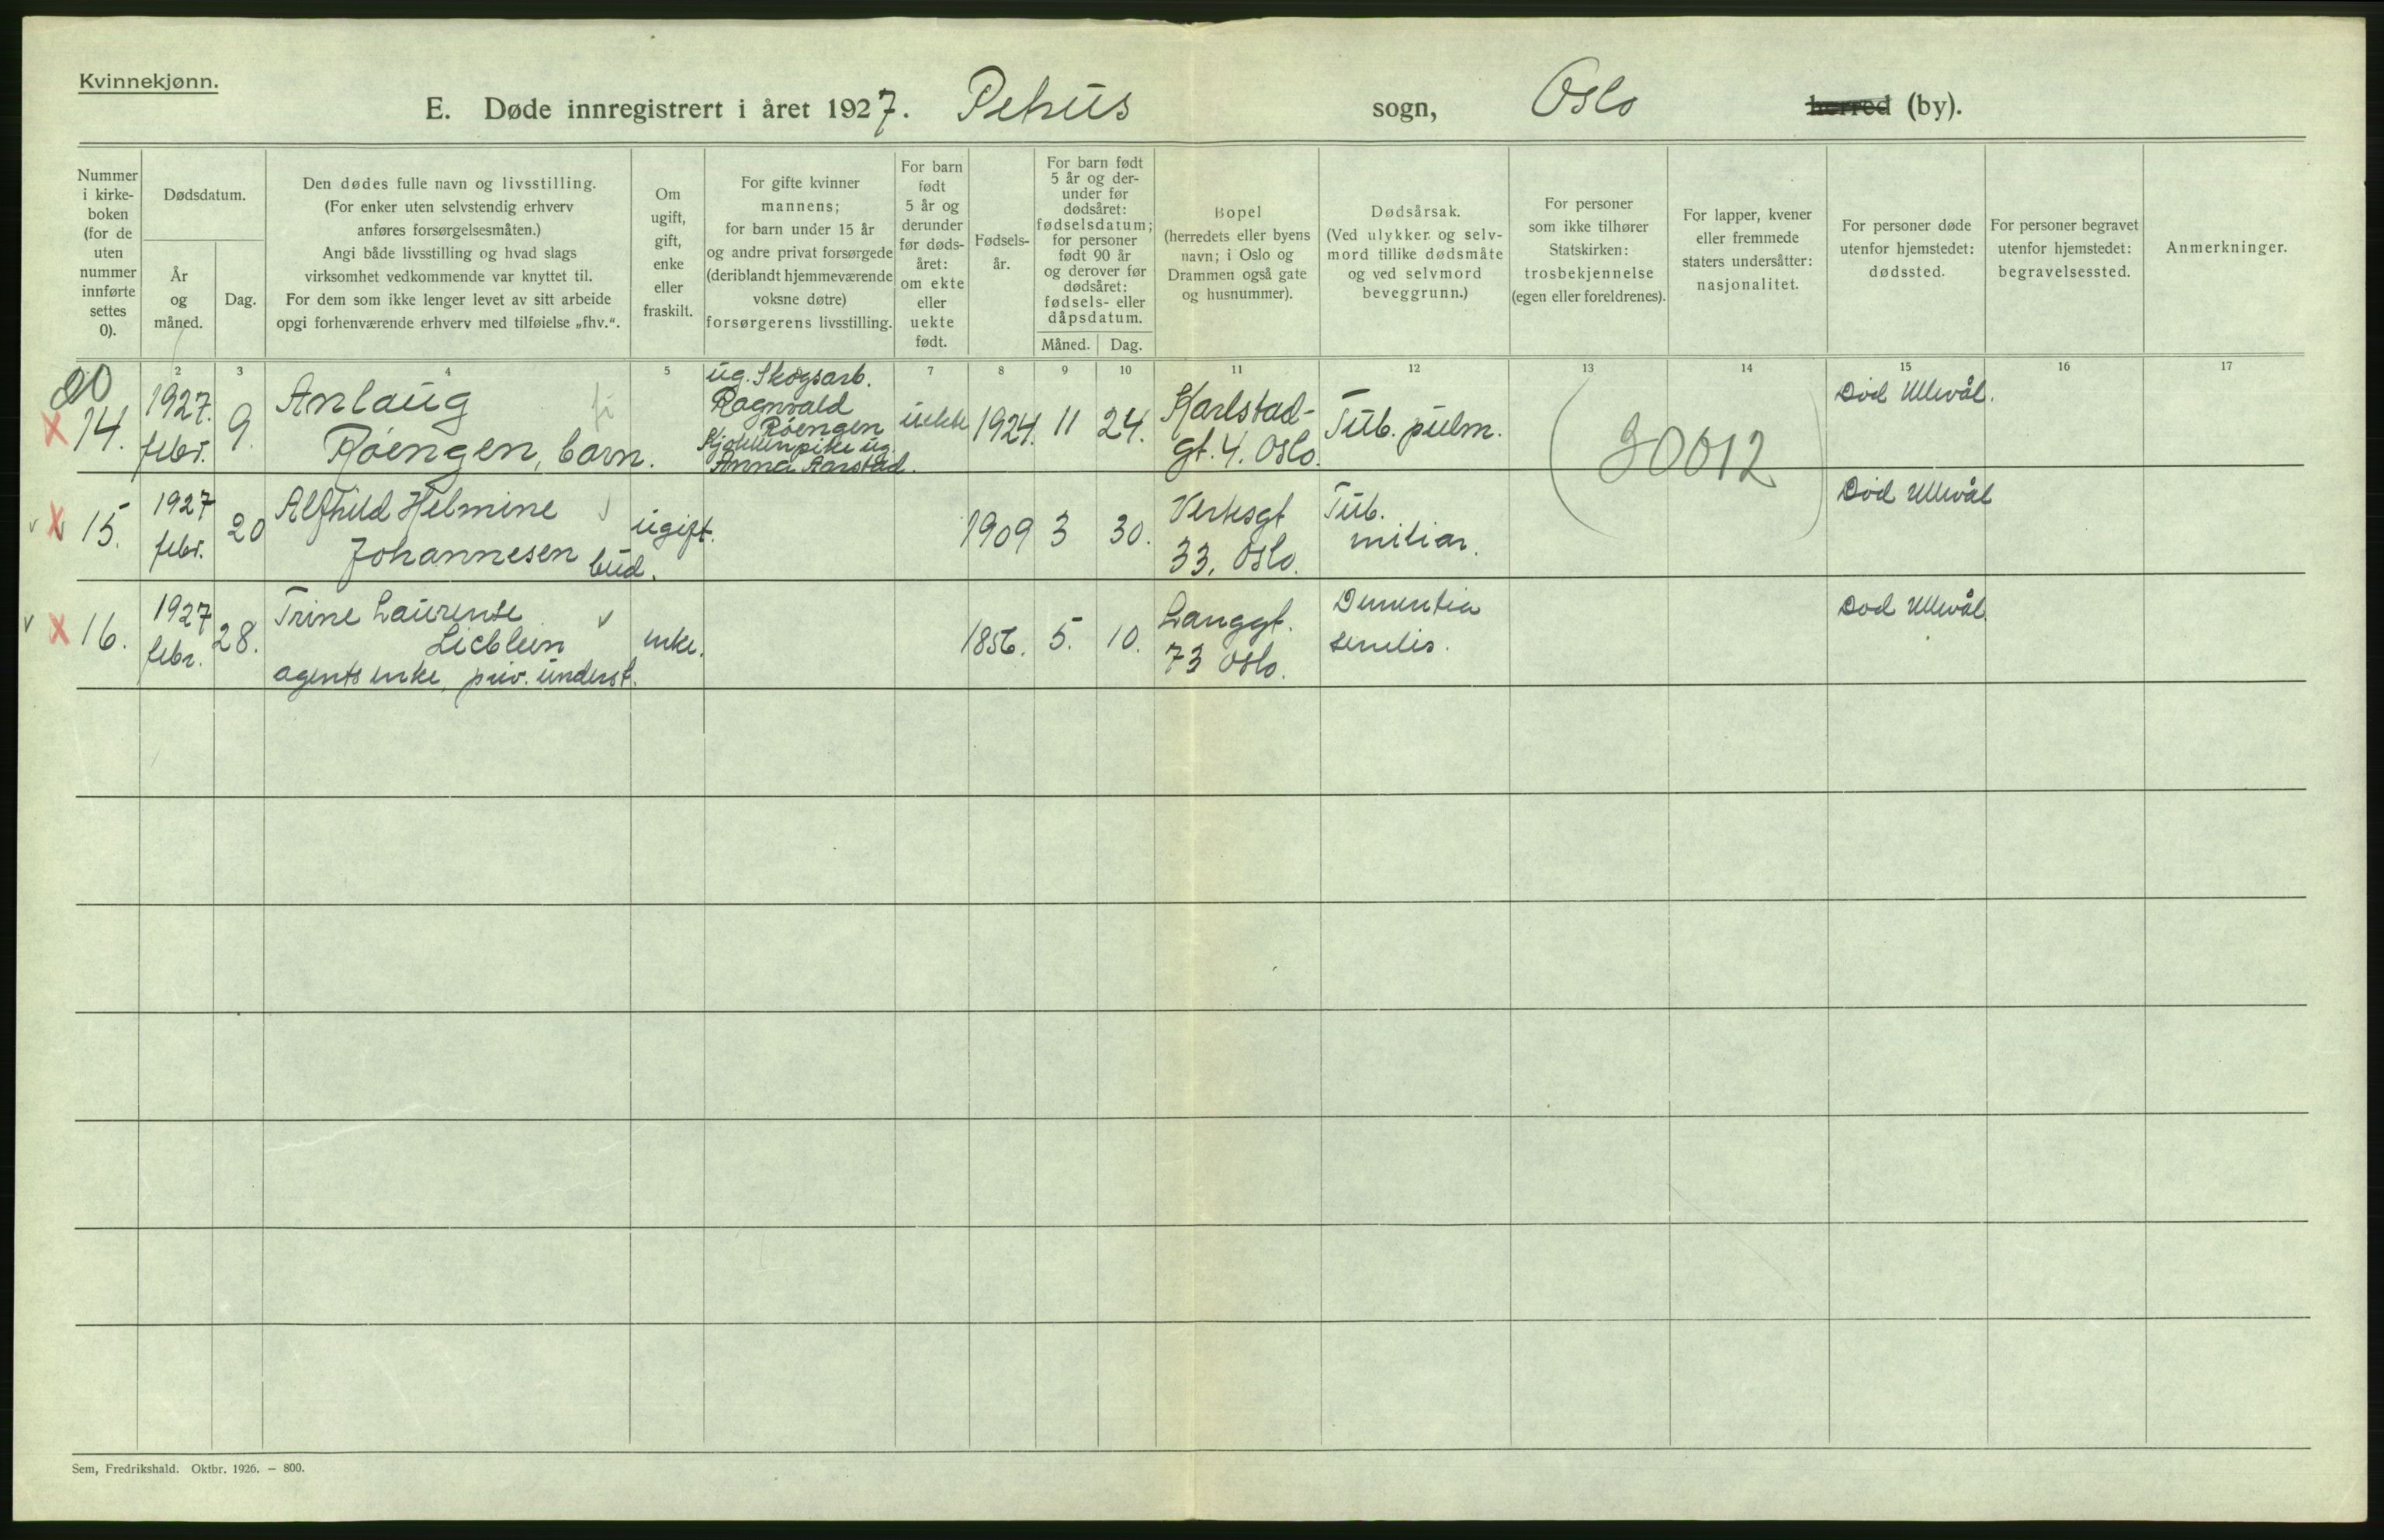 Kvinnekjønn.
E. Døde innregistrert i året 1927. Petrus sogn, Oslo herred (by).
Nummer
i kirke-
boken
(for de
uten
nummer
innførte
settes
0).
Dødsdatum.
År
og
måned.
Dag.
Den dødes fulle navn og livsstilling.
(For enker uten selvstendig erhverv
anføres forsørgelsesmåten.)
Angi både livsstilling og hvad slags
virksomhet vedkommende var knyttet til.
For dem som ikke lenger levet av sitt arbeide
opgi forhenværende erhverv med tilføielse „fhv.“.
Om
ugift,
gift,
enke
eller
fraskilt.
For gifte kvinner
mannens;
for barn under 15 år
og andre privat forsørgede
(deriblandt hjemmeværende
voksne døtre)
forsørgerens livsstilling.
For barn
født
5 år og
derunder
før døds-
året:
om ekte
eller
uekte
født.
Fødsels-
år.
For barn født
5 år og der-
under før
dødsåret:
fødselsdatum;
for personer
født 90 år
og derover før
dødsåret:
fødsels- eller
dåpsdatum.
Måned.
Dag.
Bopel
(herredets eller byens
navn; i Oslo og
Drammen også gate
og husnummer).
Dødsårsak.
(Ved ulykker og selv-
mord tillike dødsmåte
og ved selvmord
beveggrunn.)
For personer
som ikke tilhører
Statskirken:
trosbekjennelse
(egen eller foreldrenes).
For lapper, kvener
eller fremmede
staters undersåtter:
nasjonalitet.
For personer døde
utenfor hjemstedet:
dødssted.
For personer begravet
utenfor hjemstedet:
begravelsessted.
Anmerkninger.
2 3 4 5 7 8 9 10 11 12 13 14 15 16 17
14.
1927.
febr.
9.
Anlaug
Røengen, barn.
ug. Skogsarb.
Ragnvald
Røengen
Kjøkkenpike ug.
Anna Aarstad.
uekte
1924.
11
24.
Karlstad-
gt. 4. Oslo.
Tub. pulm.
(20012)
Død Ullevål.
15.
1927
febr.
20
Alfhild Helmine
Johannesen bud.
ugift.
1909
3
30.
Verksgt
33, Oslo.
Tub.
miliar.
Død Ullevål
16.
1927
febr.
28.
Trine Laurense
Lieblein
agents enke, priv. underst.
enke.
1856.
5.
10.
Langgt.
73 Oslo.
Dementia
senilis.
Død Ullevål
Sem, Fredrikshald. Oktbr. 1926. — 800.